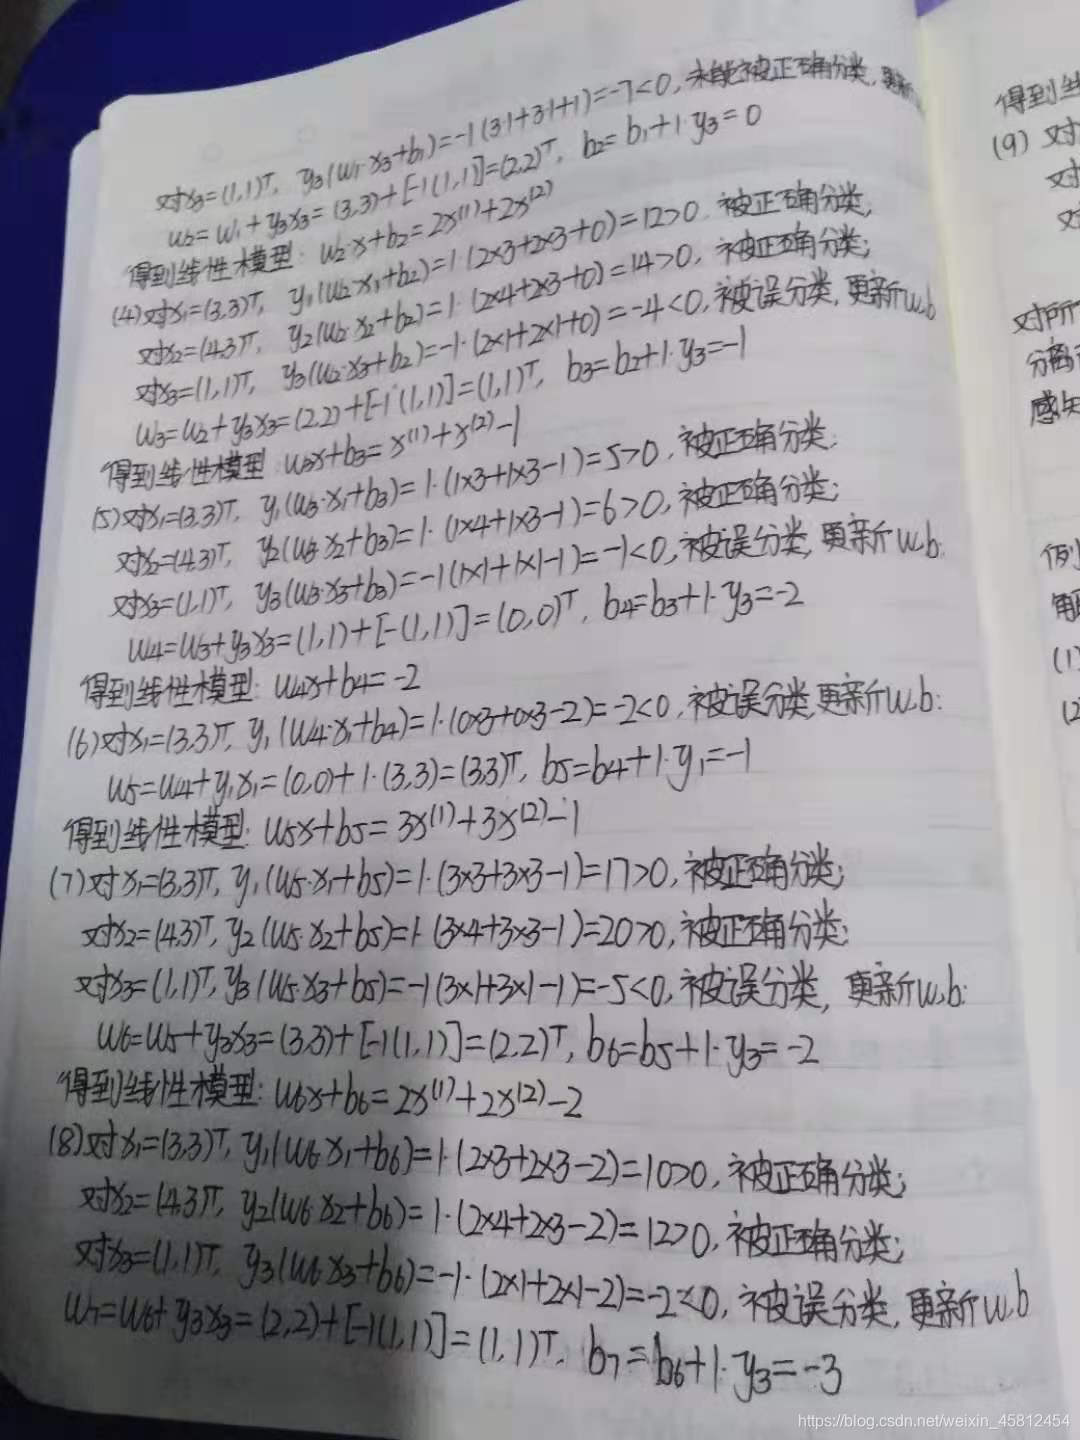 对x3=(1,1)ᵀ, y3(w1·x3+b1)=-1(3·1+3·1+1)=-7<0, 未能被正确分类, 更新
w2=w1+y3x3=(3,3)+[-1(1,1)]=(2,2)ᵀ, b2=b1+1·y3=0
得到线性模型: w2·x+b2=2x⁽¹⁾+2x⁽²⁾
(4)对x1=(3,3)ᵀ, y1(w2·x1+b2)=1·(2×3+2×3+0)=12>0. 被正确分类;
对x2=(4,3)ᵀ, y2(w2·x2+b2)=1·(2×4+2×3+0)=14>0, 被正确分类;
对x3=(1,1)ᵀ, y3(w2·x3+b2)=-1·(2×1+2×1+0)=-4<0, 被误分类, 更新w,b
w3=w2+y3x3=(2,2)+[-1(1,1)]=(1,1)ᵀ, b3=b2+1·y3=-1
得到线性模型: w3x+b3=x⁽¹⁾+x⁽²⁾-1
(5)对x1=(3,3)ᵀ, y1(w3·x1+b3)=1·(1×3+1×3-1)=5>0, 被正确分类;
对x2=(4,3)ᵀ, y2(w3·x2+b3)=1·(1×4+1×3-1)=6>0, 被正确分类;
对x3=(1,1)ᵀ, y3(w3·x3+b3)=-1(1×1+1×1-1)=-1<0, 被误分类, 更新w,b:
w4=w3+y3x3=(1,1)+[-(1,1)]=(0,0)ᵀ, b4=b3+1·y3=-2
得到线性模型: w4x+b4=-2
(6)对x1=(3,3)ᵀ, y1(w4·x1+b4)=1·(0×3+0×3-2)=-2<0, 被误分类,更新w,b:
w5=w4+y1x1=(0,0)+1·(3,3)=(3,3)ᵀ, b5=b4+1·y1=-1
得到线性模型: w5x+b5=3x⁽¹⁾+3x⁽²⁾-1
(7)对x1=(3,3)ᵀ, y1(w5·x1+b5)=1·(3×3+3×3-1)=17>0, 被正确分类;
对x2=(4,3)ᵀ, y2(w5·x2+b5)=1·(3×4+3×3-1)=20>0, 被正确分类;
对x3=(1,1)ᵀ, y3(w5·x3+b5)=-1(3×1+3×1-1)=-5<0, 被误分类, 更新w,b:
w6=w5+y3x3=(3,3)+[-1(1,1)]=(2,2)ᵀ, b6=b5+1·y3=-2
得到线性模型: w6x+b6=2x⁽¹⁾+2x⁽²⁾-2
(8)对x1=(3,3)ᵀ, y1(w6·x1+b6)=1·(2×3+2×3-2)=10>0, 被正确分类;
对x2=(4,3)ᵀ, y2(w6·x2+b6)=1·(2×4+2×3-2)=12>0, 被正确分类;
对x3=(1,1)ᵀ, y3(w6·x3+b6)=-1·(2×1+2×1-2)=-2<0, 被误分类, 更新w,b
w7=w6+y3x3=(2,2)+[-1(1,1)]=(1,1)ᵀ, b7=b6+1·y3=-3
得到线
(9) 对
对
对
对所
分离
感知
例
解
(1)
(2)
https://blog.csdn.net/weixin_45812454